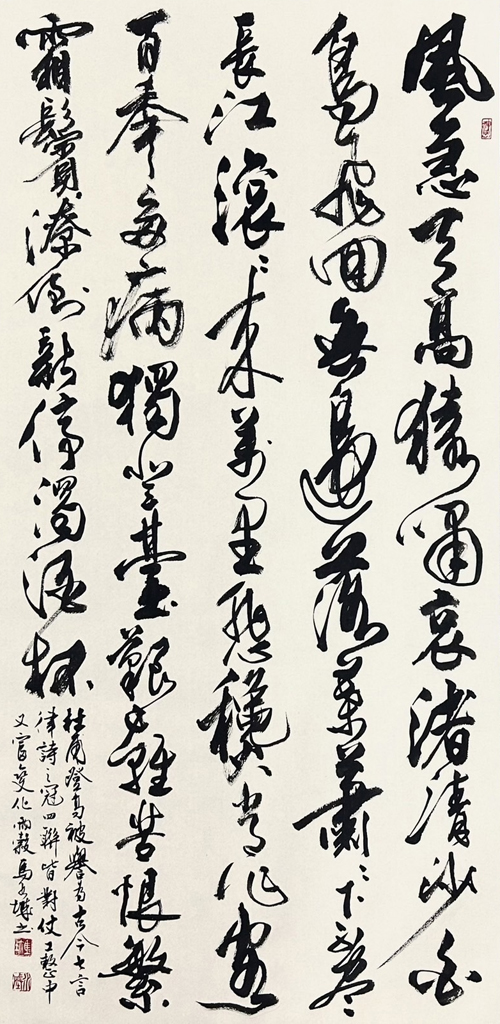 風急天高猿嘯哀渚清沙白
鳥飛回無邊落葉蕭〻下不盡
長江滾〻來萬里悲穐常作客
百年多病獨登臺艱難苦恨繁
霜鬢潦倒新停濁酒杯
杜甫登高被譽為古今七言
律詩之冠四聯皆對仗工整中
又富變化雨穀馬